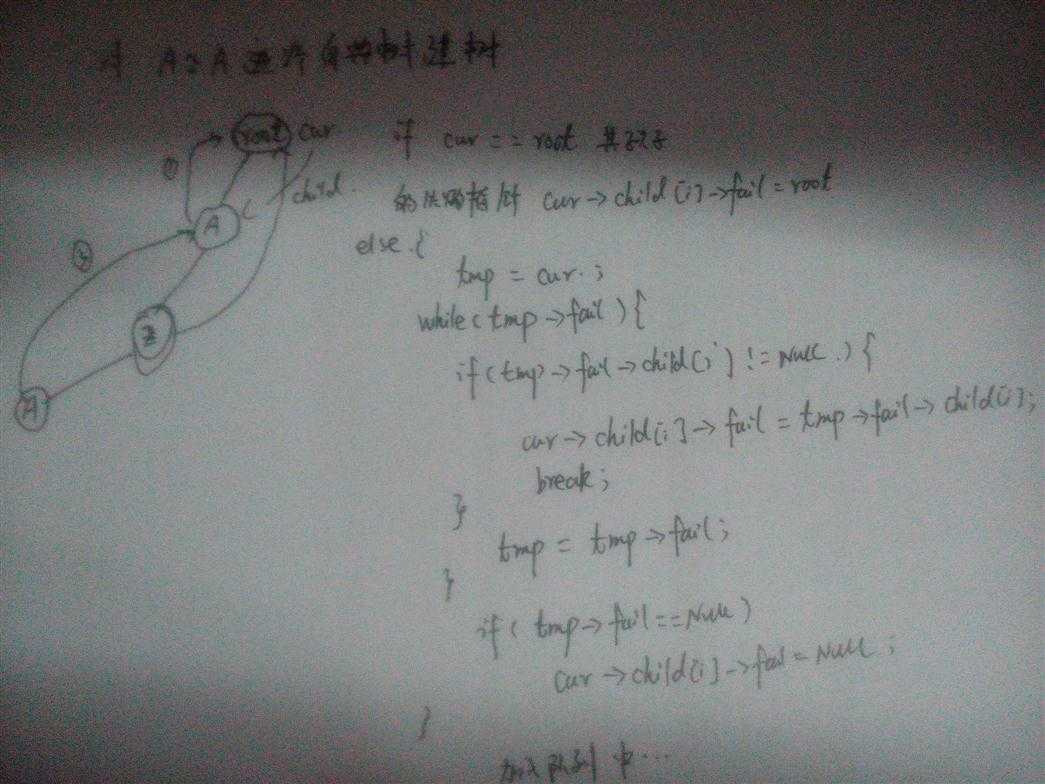 对 A Z A 这片自然树建树
root cur
if cur == root 其孩子
① child
的失败指针 cur->child[i]->fail = root
A
else {
③
tmp = cur;
while(tmp->fail){
Z
if(tmp->fail->child[i] != NULL){
A
cur->child[i]->fail = tmp->fail->child[i];
break;
}
tmp = tmp->fail;
}
if(tmp->fail==NULL)
cur->child[i]->fail=NULL;
}
加入队列中...